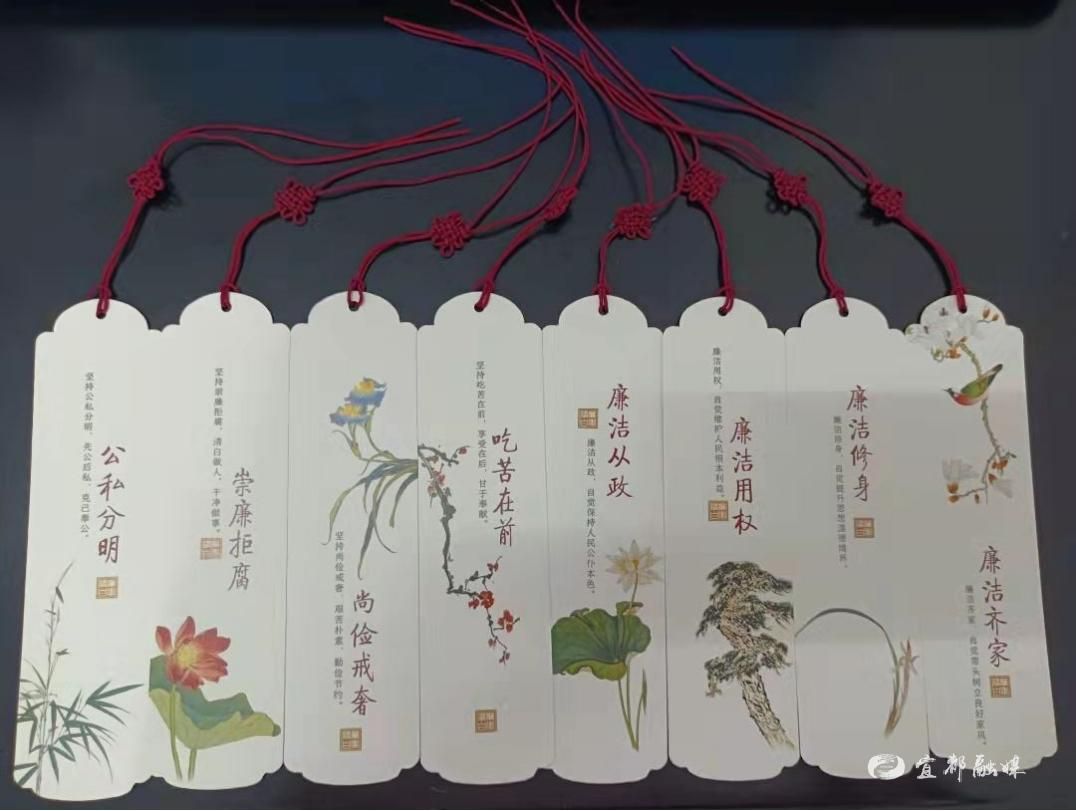 坚持公私分明，先公后私，克己奉公。
公私分明
坚持崇廉拒腐，清白做人，干净做事。
崇廉拒腐
坚持尚俭戒奢，艰苦朴素，勤俭节约。
尚俭戒奢
坚持吃苦在前，享受在后，甘于奉献。
吃苦在前
廉洁从政
廉洁从政，自觉保持人民公仆本色。
廉洁用权，自觉维护人民根本利益。
廉洁用权
廉洁修身
廉洁修身，自觉提升思想道德境界。
廉洁齐家
廉洁齐家，自觉带头树立良好家风。
宜都融媒